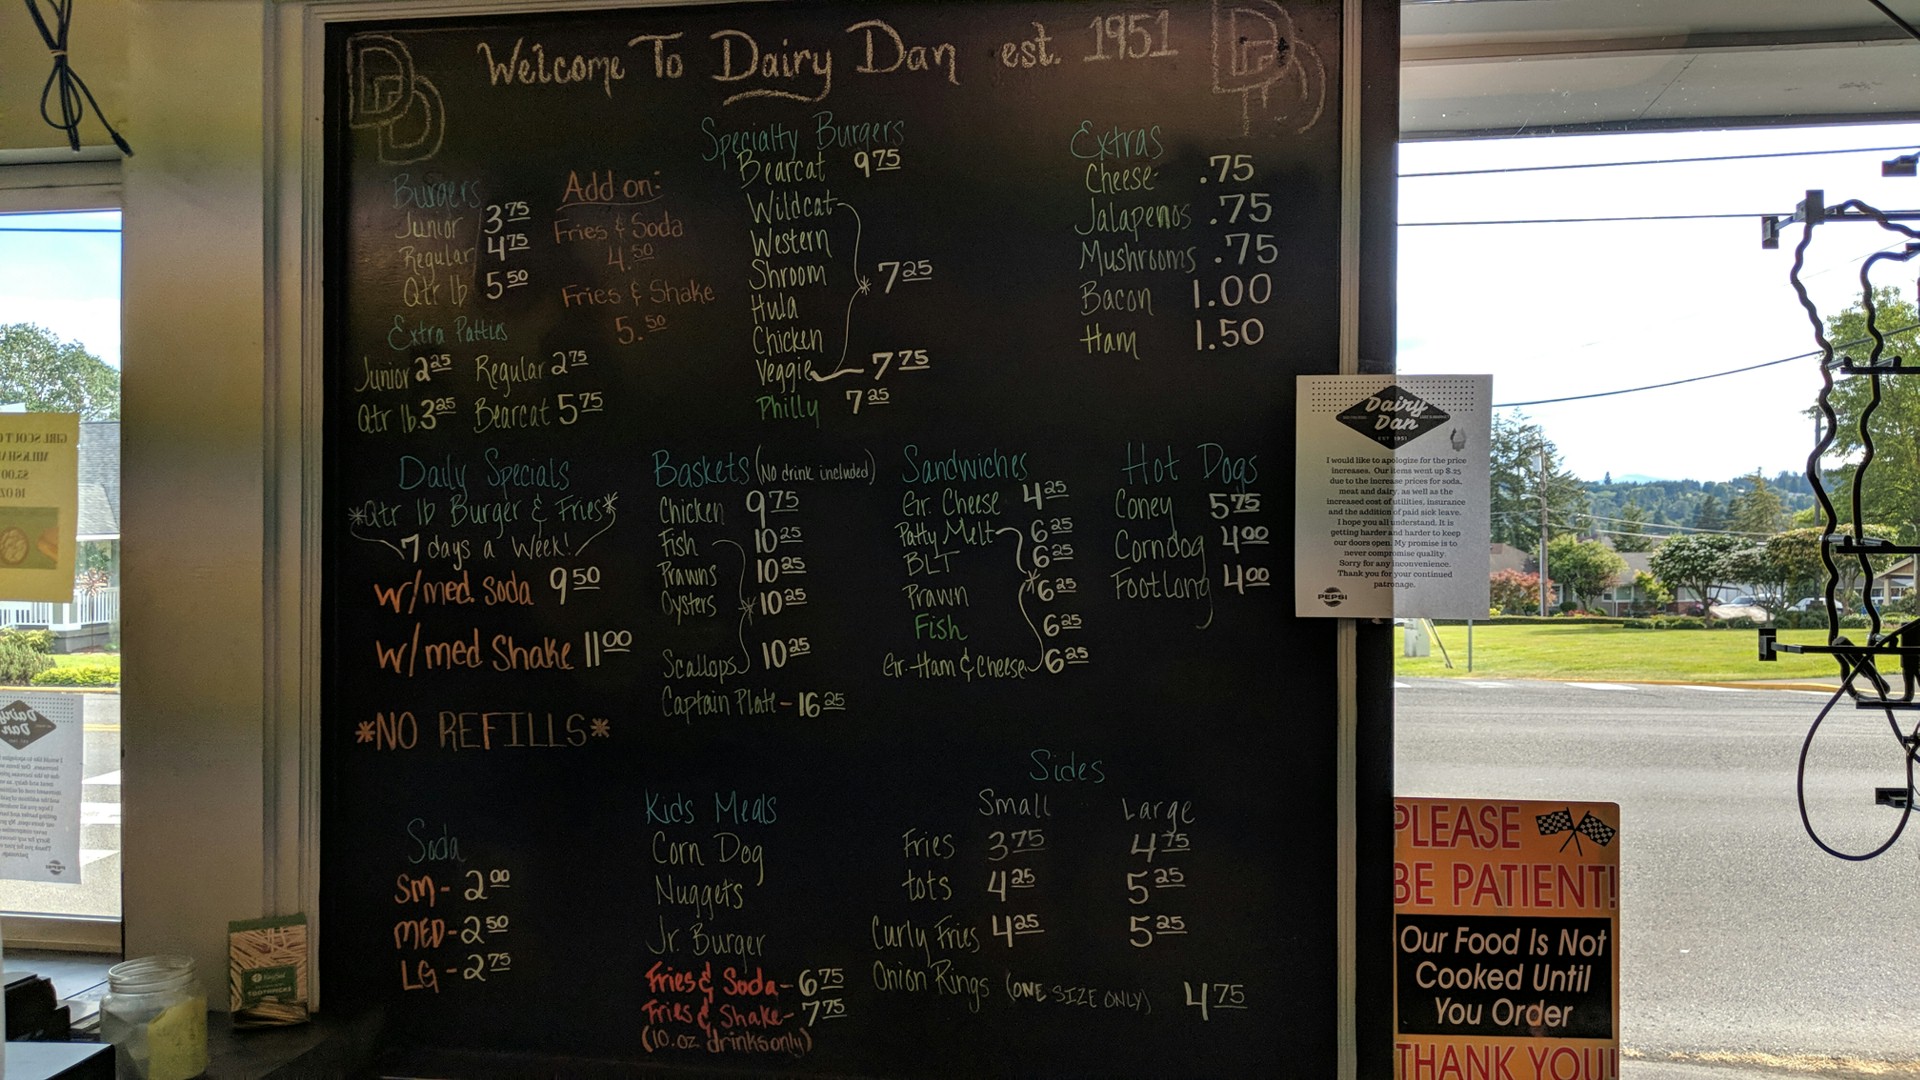 Welcome To Dairy Dan est. 1951
DD
DD
Burgers
Junior 3.75
Regular 4.75
Qtr lb 5.50
Extra Patties
Junior 2.25 Regular 2.75
Qtr lb. 3.25 Bearcat 5.75
Add on:
Fries & Soda
4.50
Fries & Shake
5.50
Specialty Burgers
Bearcat 9.75
Wildcat
Western
Shroom
Hula
Chicken
7.25
Veggie 7.75
Philly 7.25
Extras
Cheese .75
Jalapenos .75
Mushrooms .75
Bacon 1.00
Ham 1.50
Daily Specials
*Qtr lb Burger & Fries*
7 days a Week!
w/med. Soda 9.50
w/med Shake 11.00
*NO REFILLS*
Baskets (No drink included)
Chicken 9.75
Fish 10.25
Prawns 10.25
Oysters 10.25
Scallops 10.25
Captain Plate - 16.25
Sandwiches
Gr. Cheese 4.25
Patty Melt 6.25
BLT 6.25
Prawn 6.25
Fish 6.25
Gr. Ham & Cheese 6.25
Hot Dogs
Coney 5.75
Corndog 4.00
Footlong 4.00
Soda
Sm - 2.00
MED - 2.50
LG - 2.75
Kids Meals
Corn Dog
Nuggets
Jr. Burger
Fries & Soda - 6.75
Fries & Shake - 7.75
(10.oz drinks only)
Sides
Small Large
Fries 3.75 4.75
tots 4.25 5.25
Curly Fries 4.25 5.25
Onion Rings (ONE SIZE ONLY) 4.75
Dairy
Dan
EST 1951
I would like to apologize for the price
increases. Our items went up $.25
due to the increase prices for soda,
meat and dairy, as well as the
increased cost of utilities, insurance
and the addition of paid sick leave.
I hope you all understand. It is
getting harder and harder to keep
our doors open. My promise is to
never compromise quality.
Sorry for any inconvenience.
Thank you for your continued
patronage.
PEPSI
PLEASE
BE PATIENT!
Our Food Is Not
Cooked Until
You Order
THANK YOU!
GIRL SCOUT
Dairy
Dan
TOOTHPICKS